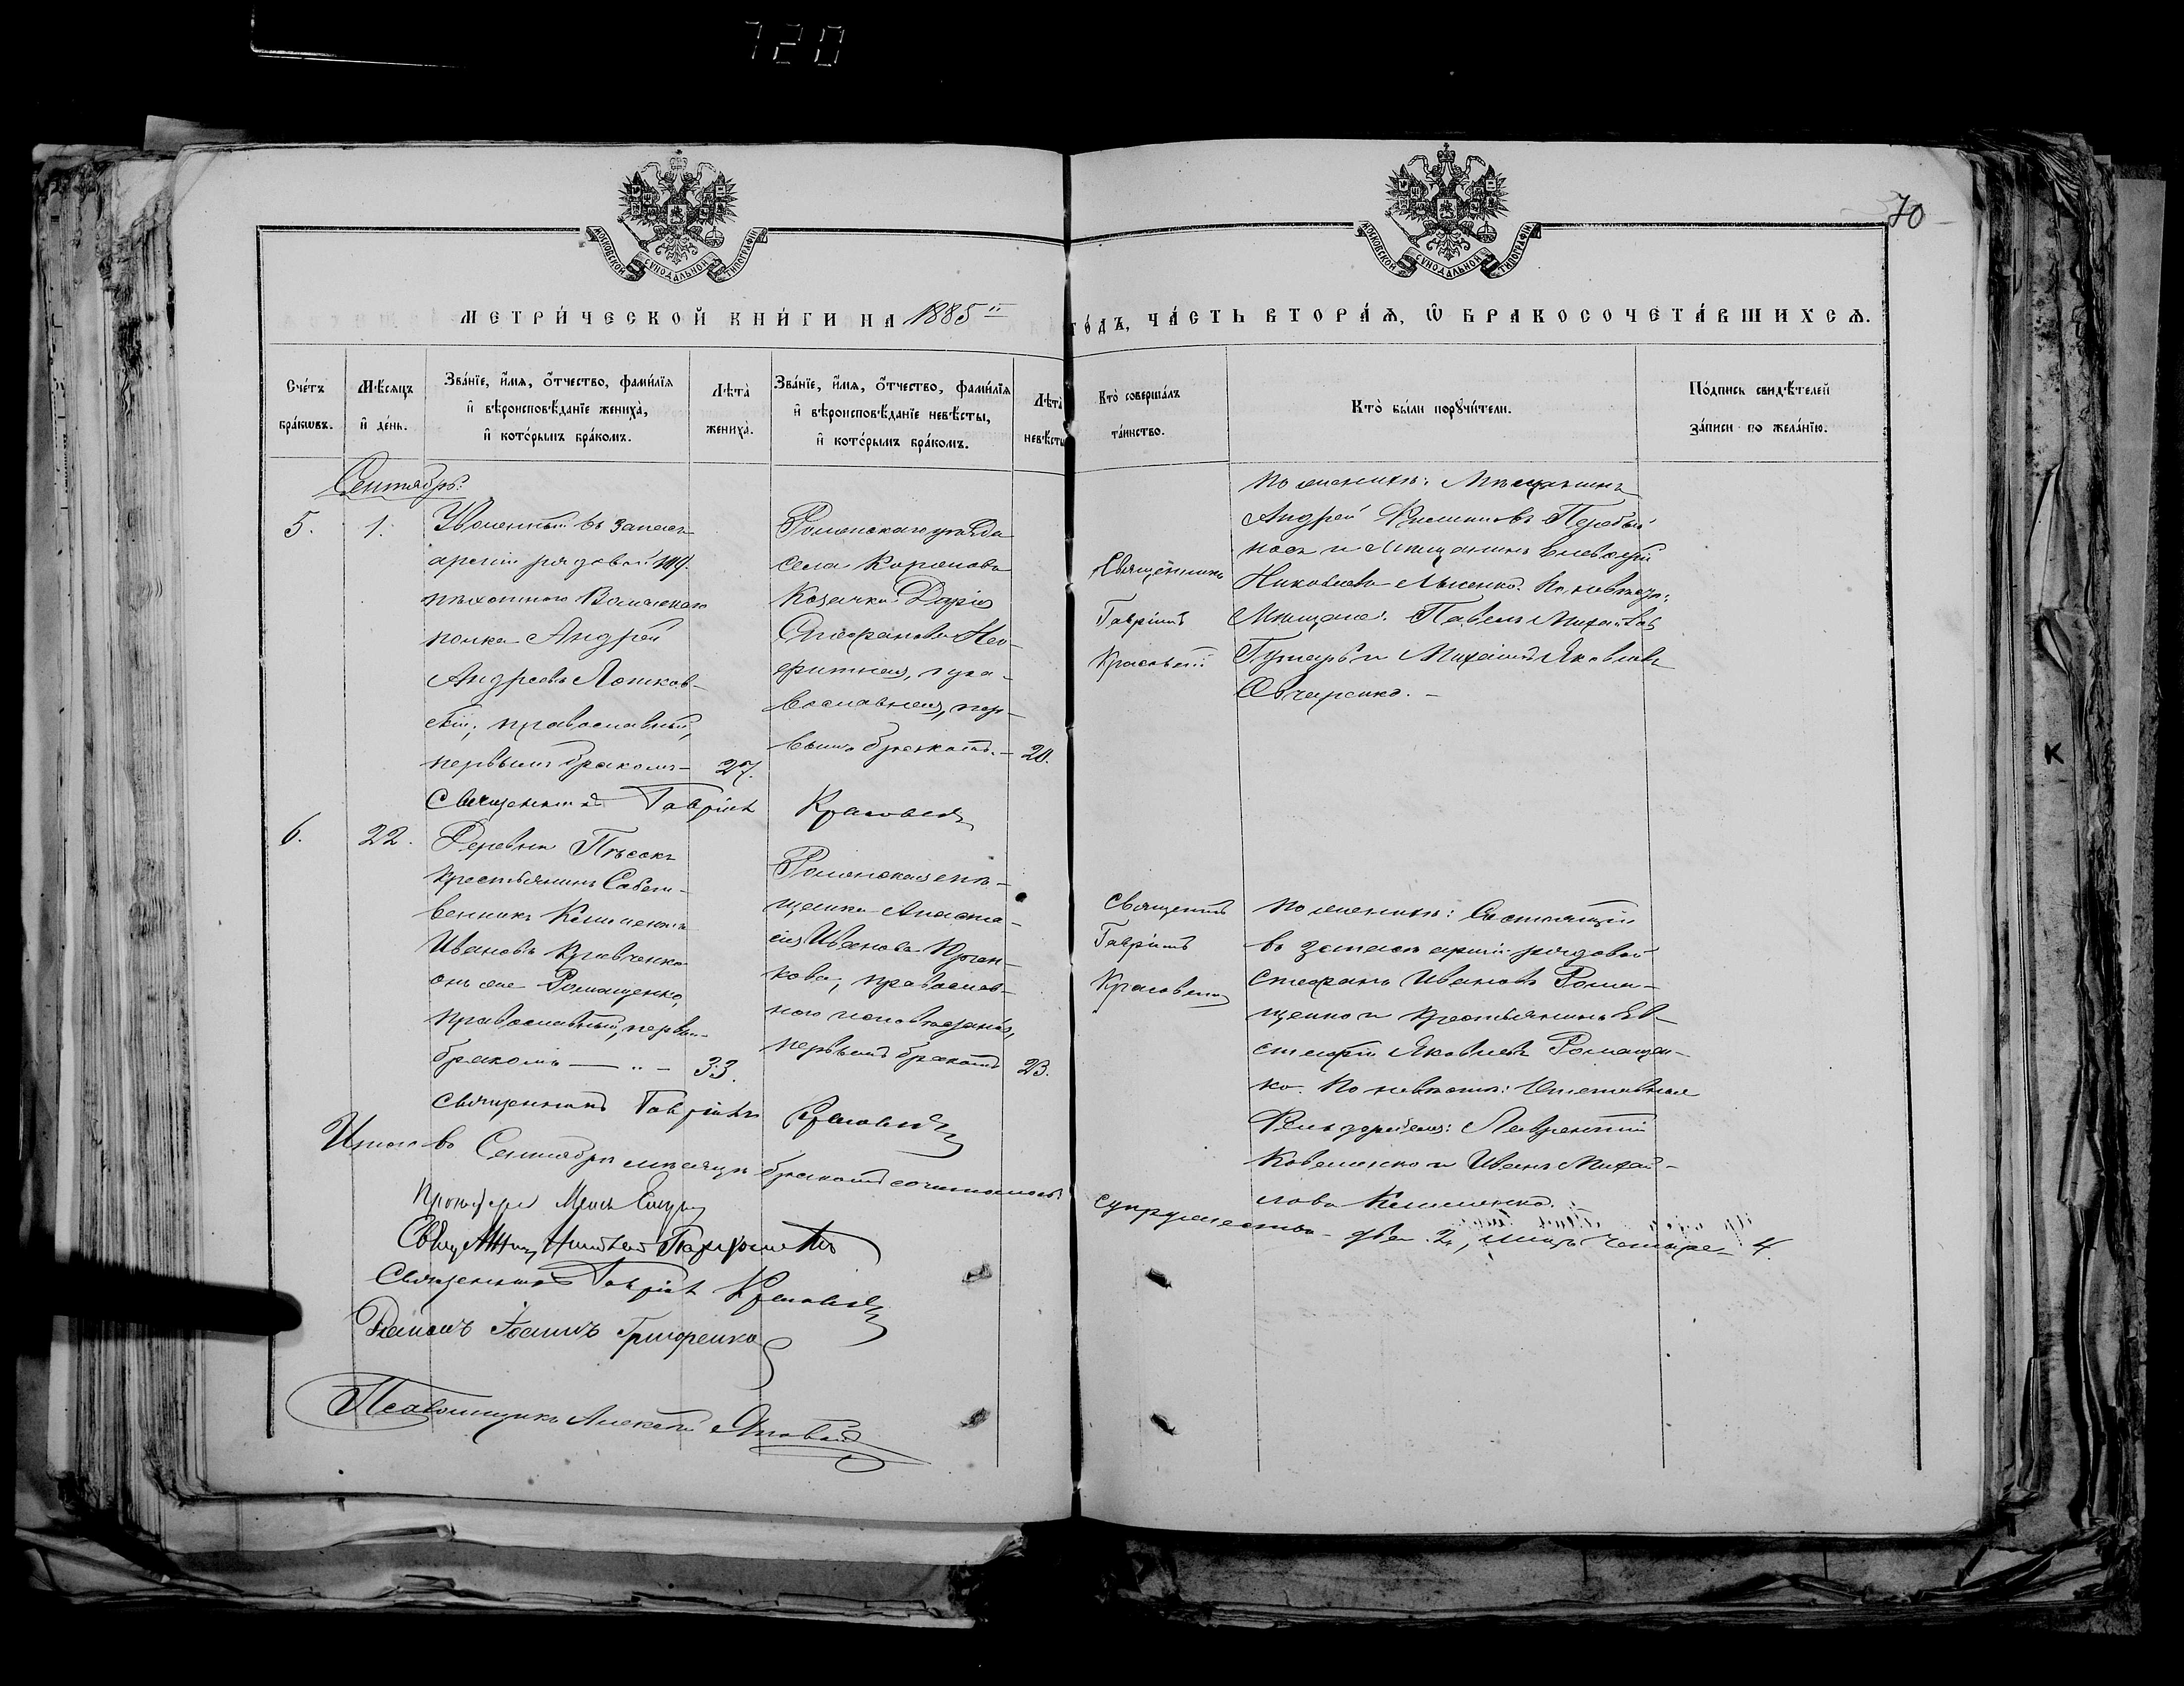 720
70
МОСКОВСКОЙ СУНОДАЛЬНОЙ ТИПОГРАФІИ
МОСКОВСКОЙ СУНОДАЛЬНОЙ ТИПОГРАФІИ
МЕТРИ́ЧЕСКОЙ КНИ́ГИ НА 1885й го́дъ, ЧА́СТЬ ВТОРА́Ѧ, Ѽ БРАКОСОЧЕТА́ВШИХСѦ.
Сче́тъ бра́кωвъ.
Мѣ́сѧцъ и҆ де́нь.
Зва́нїе, и҆́мѧ, о҆́тчество, фами́лїѧ и҆ вѣроисповѣ́данїе жениха̀, и҆ кото́рымъ бра́комъ.
Лѣта̀ жениха̀.
Зва́нїе, и҆́мѧ, о҆́тчество, фами́лїѧ и҆ вѣроисповѣ́данїе невѣ́сты, и҆ кото́рымъ бра́комъ.
Лѣта̀ невѣ́сты
Кто̀ соверша́лъ та́инство.
Кто̀ бы́ли порꙋчи́тели.
По́дпись свидѣ́телей за́писи по жела́нїю.
Сентябрь:
5.
1.
Уволенный въ запасъ
арміи рядовой 119.
пѣхотнаго Коломенскаго
полка Андрей
Андреевъ
скій, православный,
первымъ бракомъ
27.
Роменскаго уѣзда
села Коровова
Козачка Дарія
Стефанова Нео-
фитная, пра-
вославная, пер-
вымъ бракомъ. –
20.
Священникъ
Гавріилъ
Красовскій
По женихѣ: Мѣщанинъ
Андрей Филиповъ Перебій-
носъ и Мѣщанинъ
Николаевъ Лысенко. По невѣстѣ:
Мѣщане: Павелъ Михайловъ
и Михаилъ Яковлевъ
Овчаренко. –
Священникъ Гавріилъ Красовскій
6.
22.
Деревни Пѣсокъ
Крестьянинъ Собст-
венникъ Климентъ
Ивановъ Кравченко
онъ же Ромащенко,
православный, первымъ
бракомъ
33.
Роменская мѣ-
щанка Анаста-
сія Иванова
кова, православ-
наго исповѣданія,
первымъ бракомъ
23.
Священникъ
Гавріилъ
Красовскій
По женихѣ: Состоящій
въ запасѣ арміи рядовой
Стефанъ Ивановъ Рома-
щенко и крестьянинъ Ев-
стафій Яковлевъ Ромащен-
ко. По невѣстѣ: Отставные
Фельдфебеля: Лаврентій
Коваленко и Иванъ Михай-
ловъ Клименко.
Священникъ Гавріилъ Красовскій
Итого въ Сентябрѣ мѣсяцѣ бракомъ сочеталось:
супружества два 2, лицъ четыре 4.
Священникъ Гавріилъ Красовскій
Діаконъ Іоаннъ Григоренко
Псаломщикъ Алексѣй
К